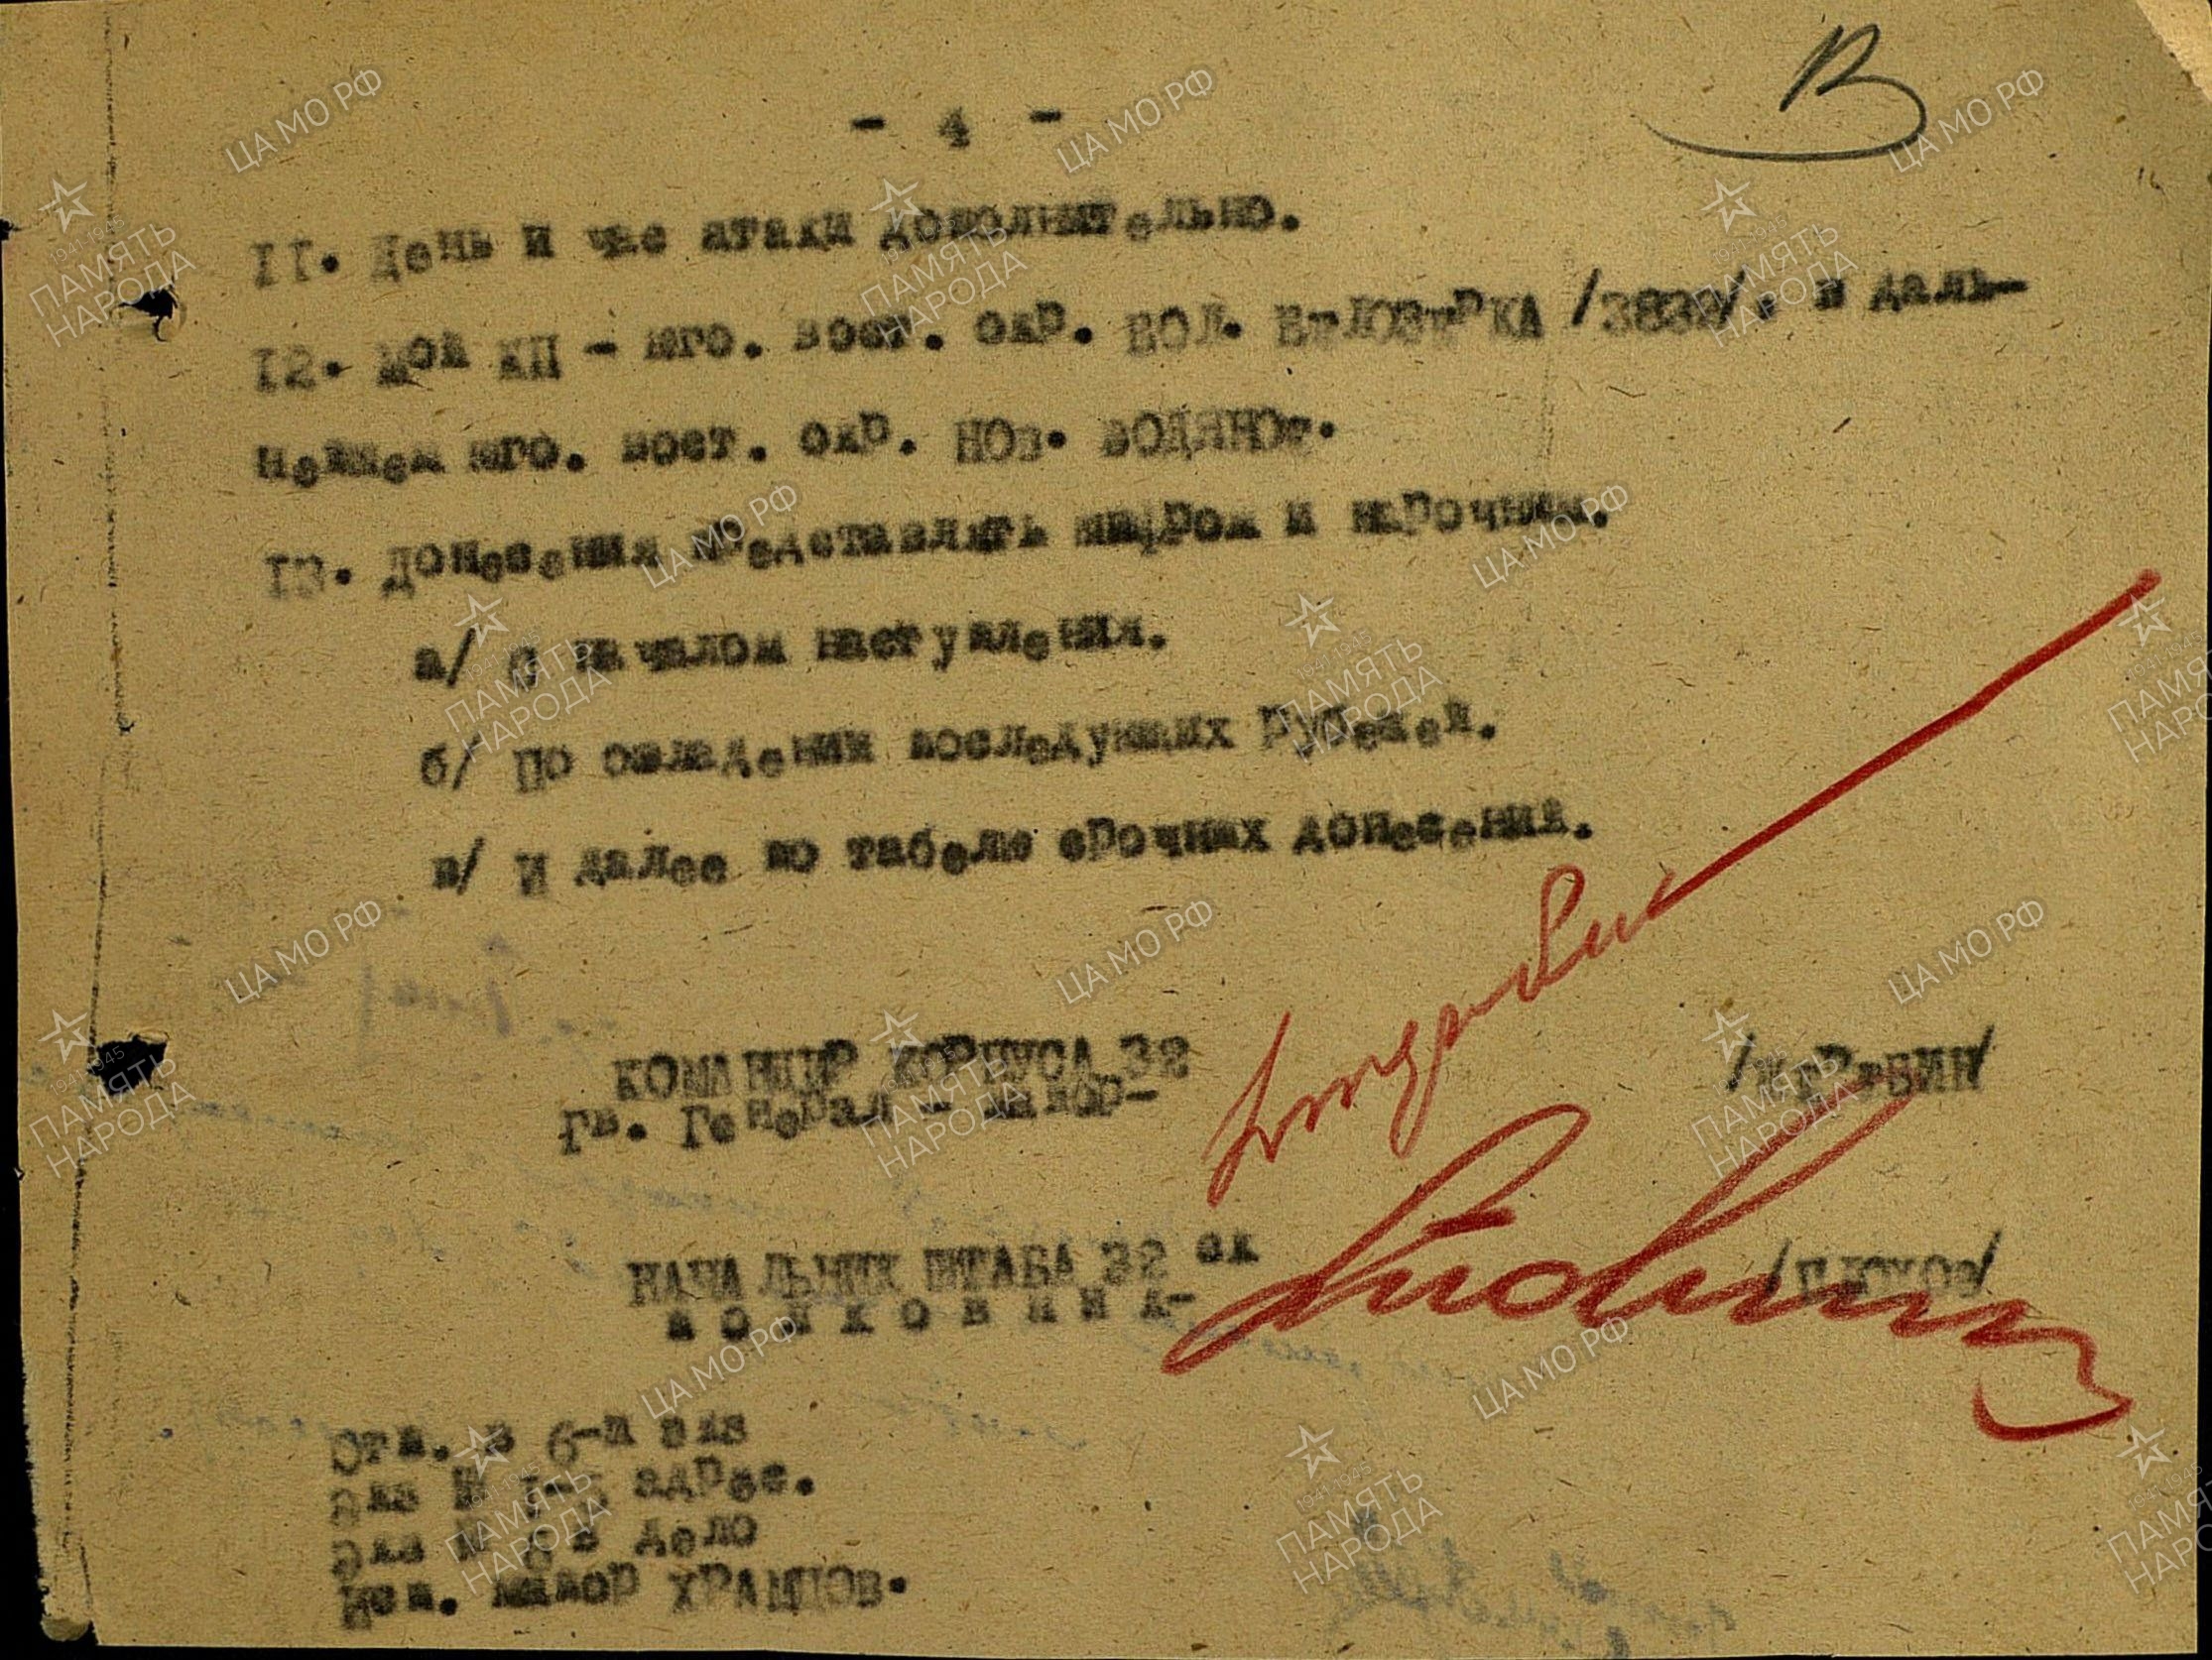 - 4 -
11. День и час атаки дополнительно.
12. Мой КП - юго. вост. окр. БОЛ. БЕЛОЗЕРКА /3832/. в даль-
нейшем юго. вост. окр. НОВ. ВОДЯНОЕ.
13. Донесения представлять шифром и нарочным.
а/ С началом наступления.
б/ По овладении последующих рубежей.
в/ И далее по табелю срочных донесений.
КОМАНДИР КОРПУСА 32
Гв. Генерал - майор-
/ЖЕРЕБИН/
НАЧАЛЬНИК ШТАБА 32 ск
полковник-
/ПЛЮХОВ/
Отп. в 6-и экз
Экз № 1-5 адрес.
Экз № 6 в дело
Исп. майор ХРАМЦОВ.
ЦА МО РФ
1941-1945
ПАМЯТЬ
НАРОДА